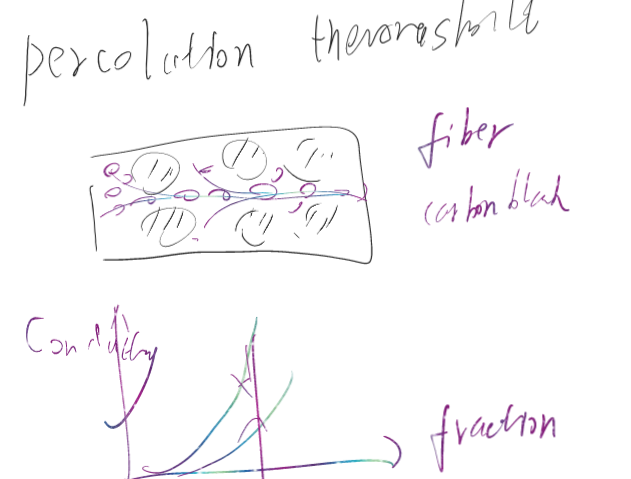 percolation theroroashold
fiber
carbon blak
Conductivity
fraction